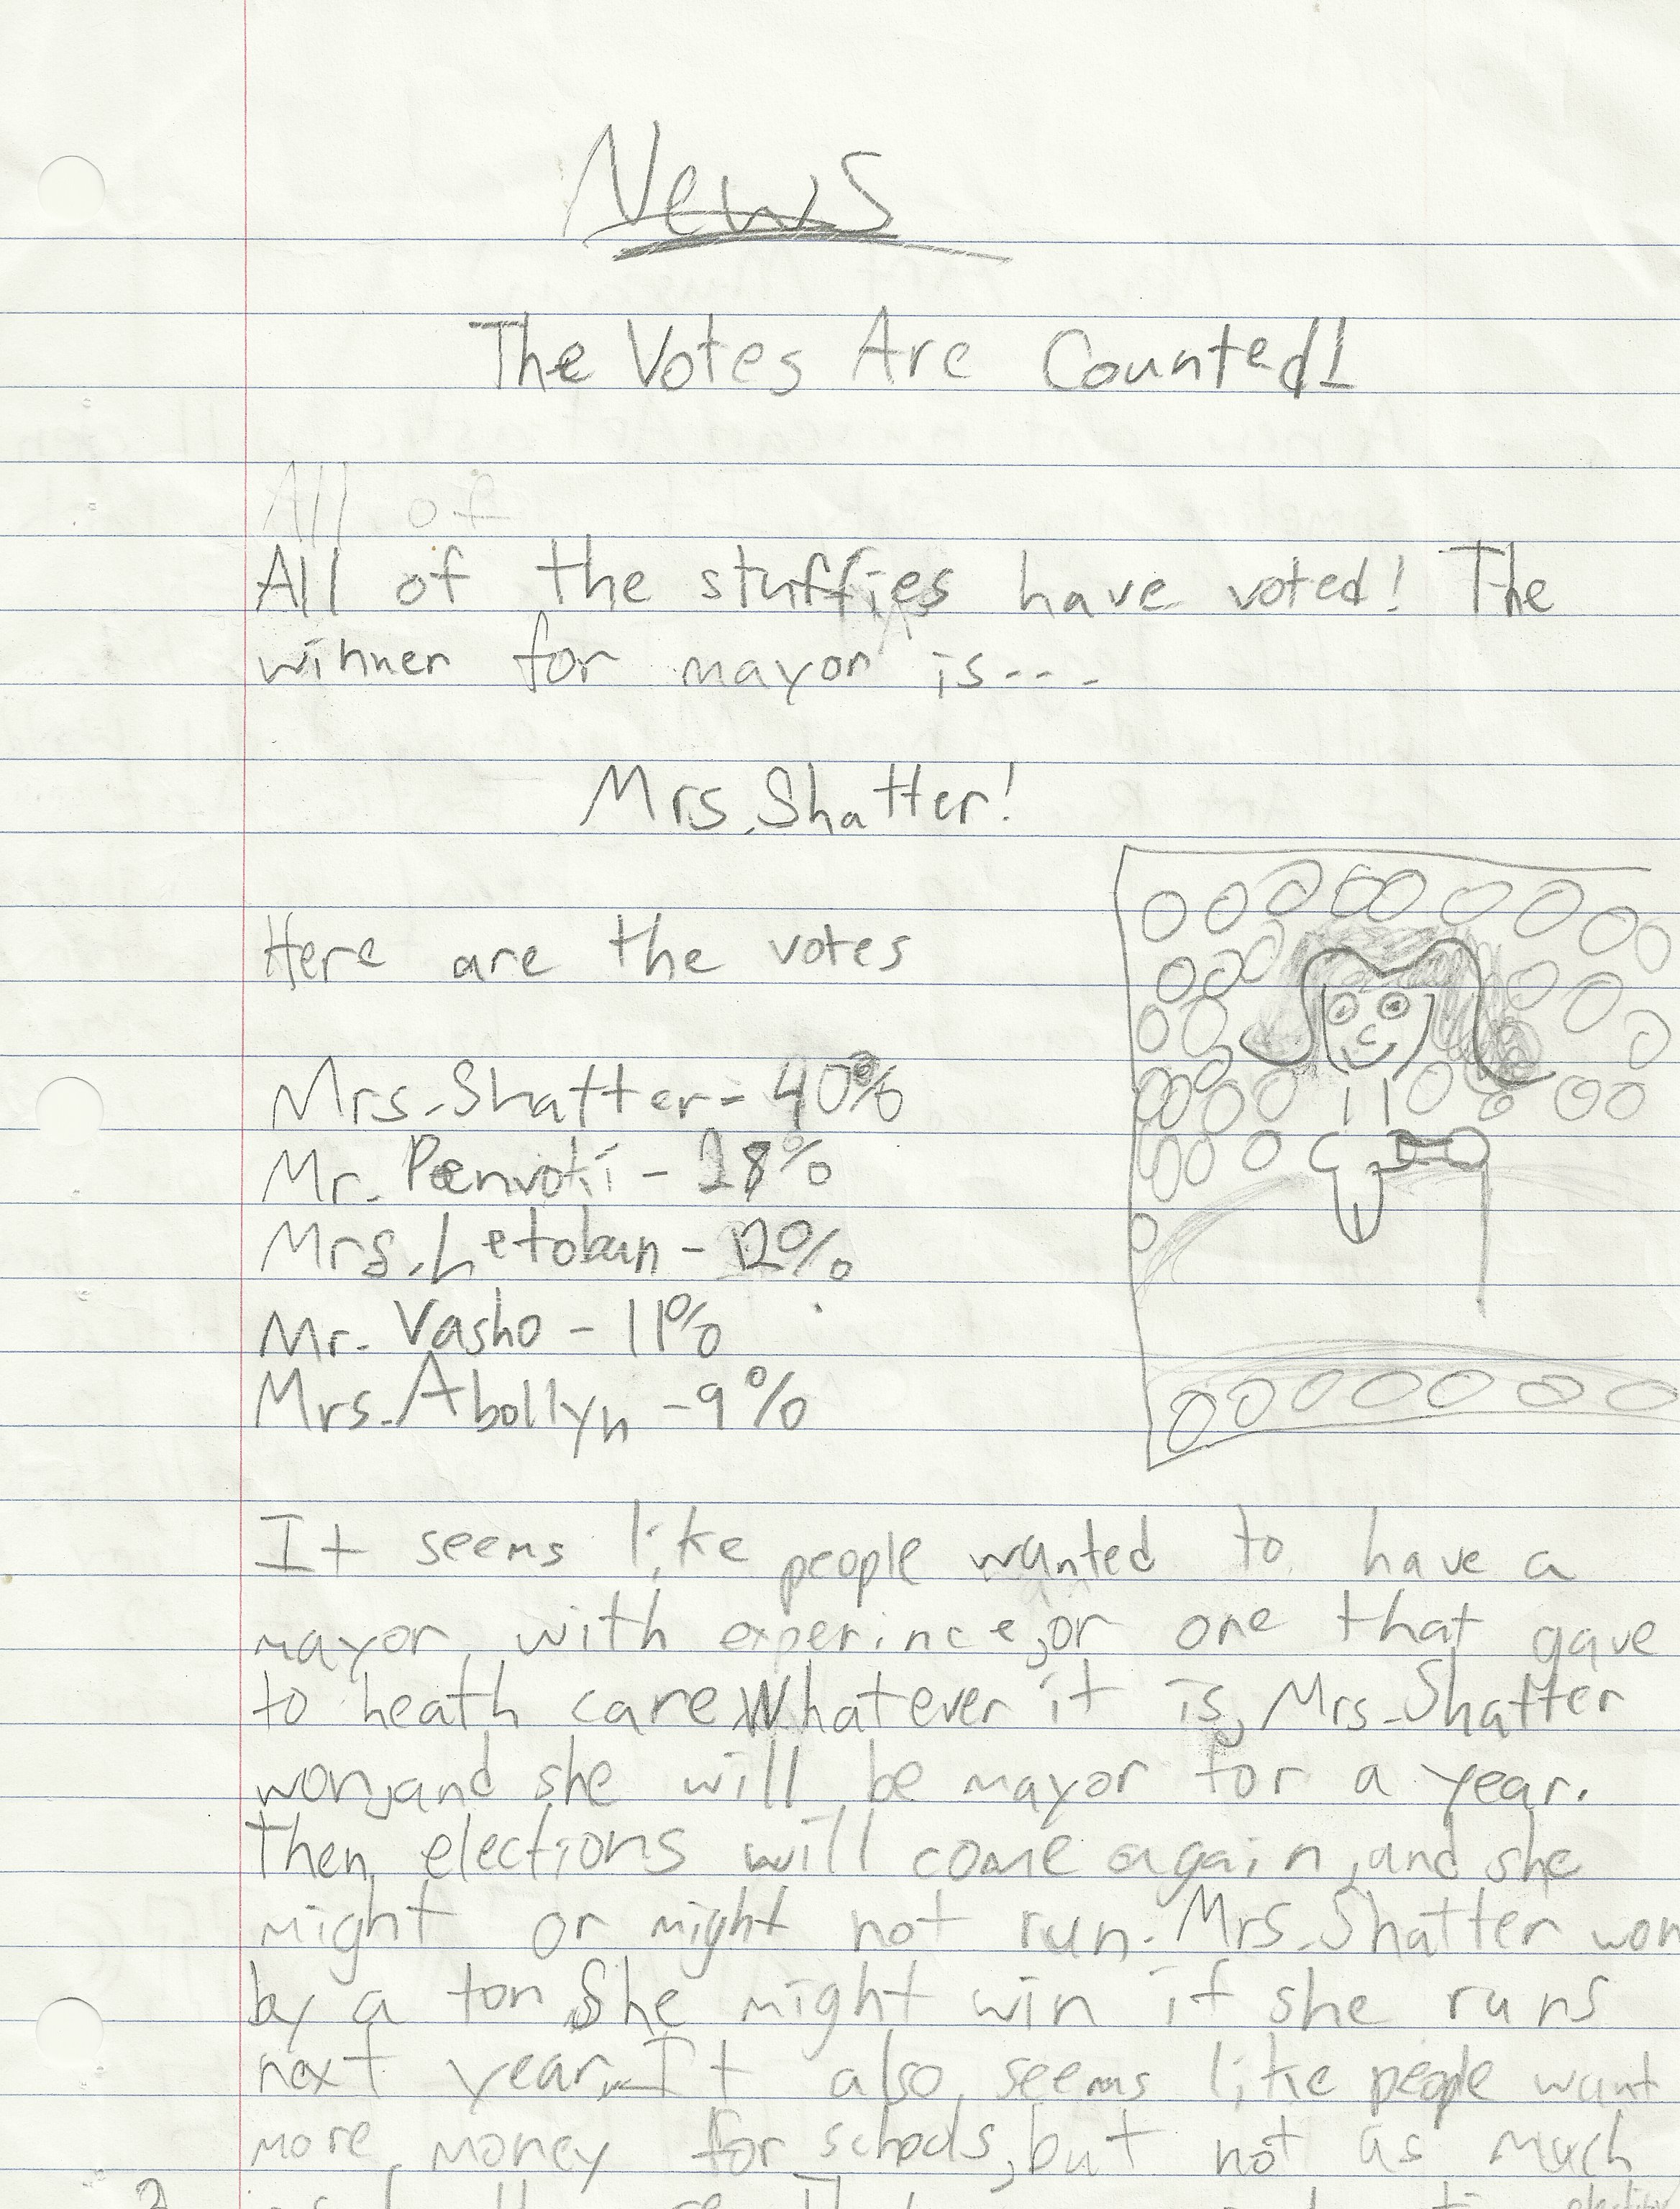 News
The Votes Are Counted!
All of
All of the stuffies have voted! The
winner for mayor is...
Mrs. Shatter!
Here are the votes
Mrs. Shatter - 40%
Mr. Penvoti - 28%
Mrs. Letoban - 12%
Mr. Vasho - 11%
Mrs. Abollyn - 9%
It seems like people wanted to have a
mayor with experince, or one that gave
to heath care. Whatever it is, Mrs. Shatter
won, and she will be mayor for a year.
Then elections will come again, and she
might or might not run. Mrs. Shatter won
by a ton. She might win if she runs
next year. It also seems like people want
more money for schools, but not as much
2